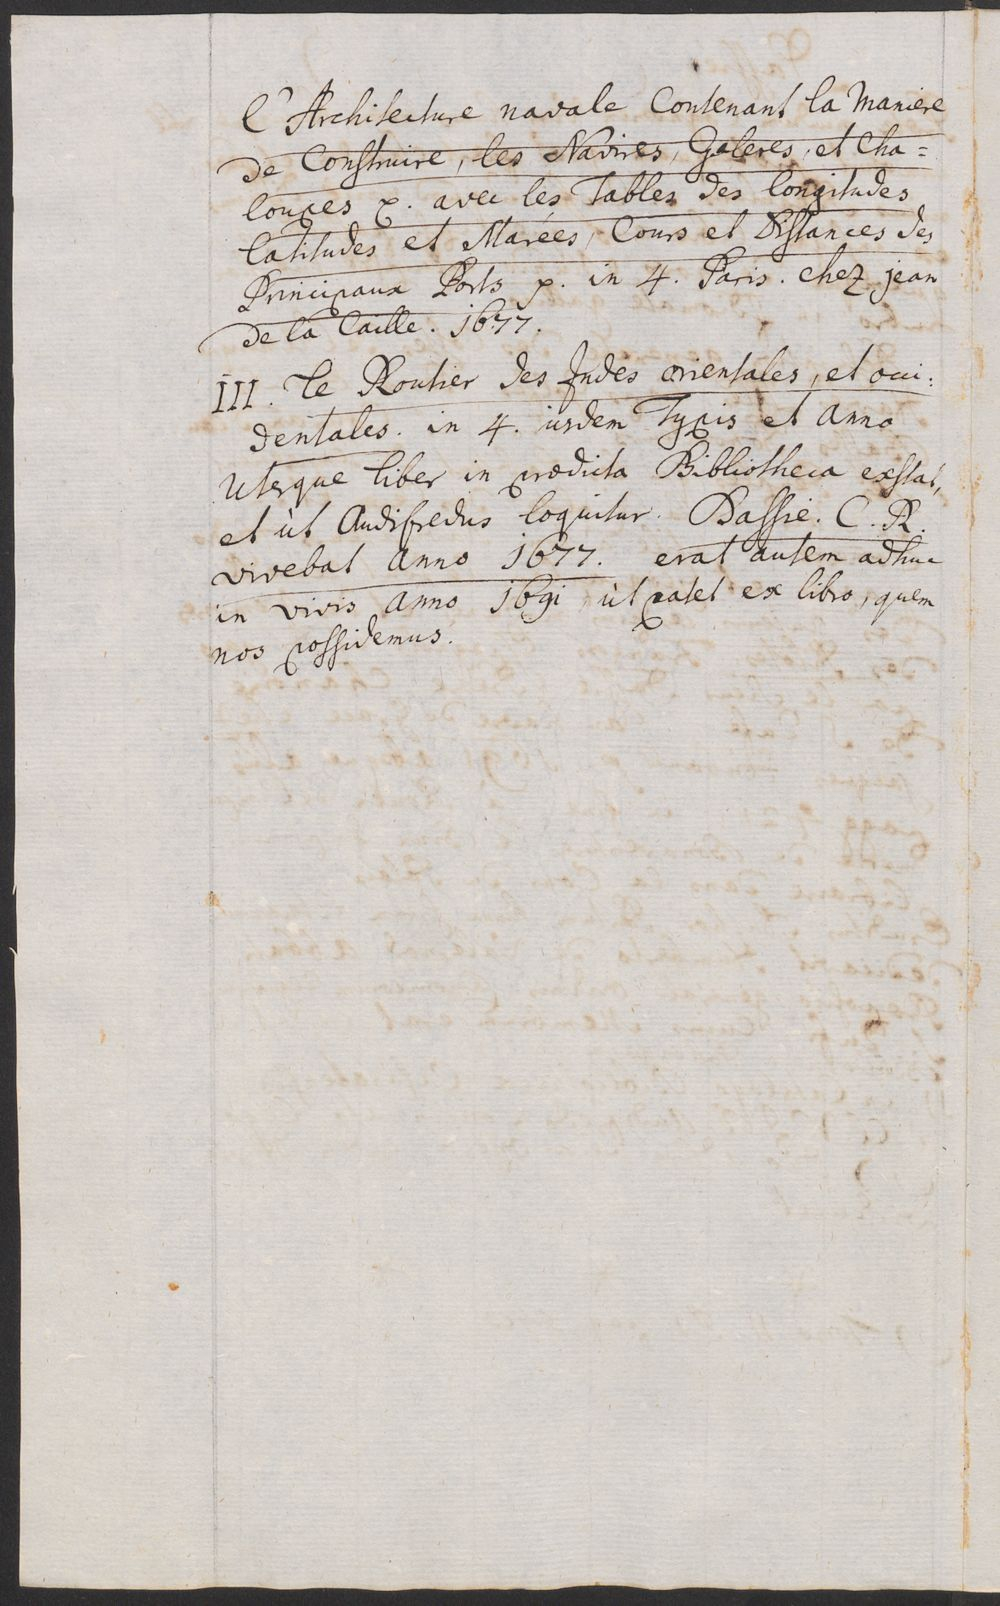 l'Architecture navale Contenant la Maniere
de Construire, les Navires, Galeres, et Cha=
loupes p. avec les Tables des longitudes
latitudes et Marées, Cours et Distances des
Principaux Ports p. in 4. Paris. chez jean
de la Caille. 1677.
III. Le Routier des Indes orientales, et occi:
dentales. in 4. iisdem Typis et Anno
Uterque liber in prædicta Bibliotheca exstat,
et ùt Audifredus loquitur. Dassie. C. R.
vivebat Anno 1677. erat autem adhuc
in vivis Anno 1691, ùt patet ex libro, quem
nos possidemus.